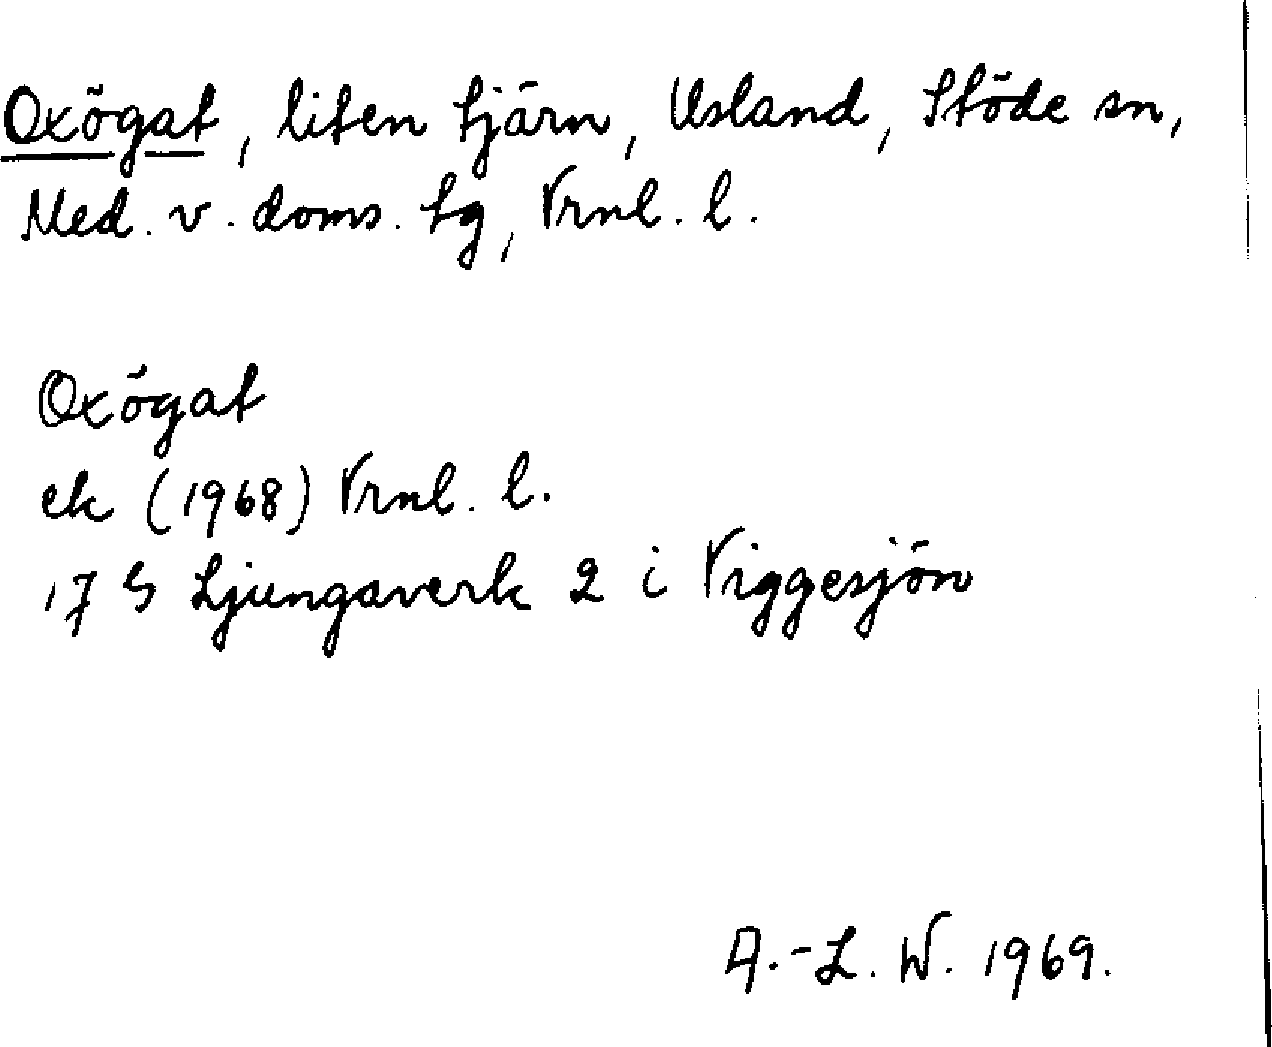 Oxögat, liten tjärn, Usland, Stöde sn,
Med. v. doms. tg, Vrnl. l.
Oxögat
ek (1968) Vrnl. l.
17 G Ljungaverk 2 i Viggesjön
A.-L. W. 1969.